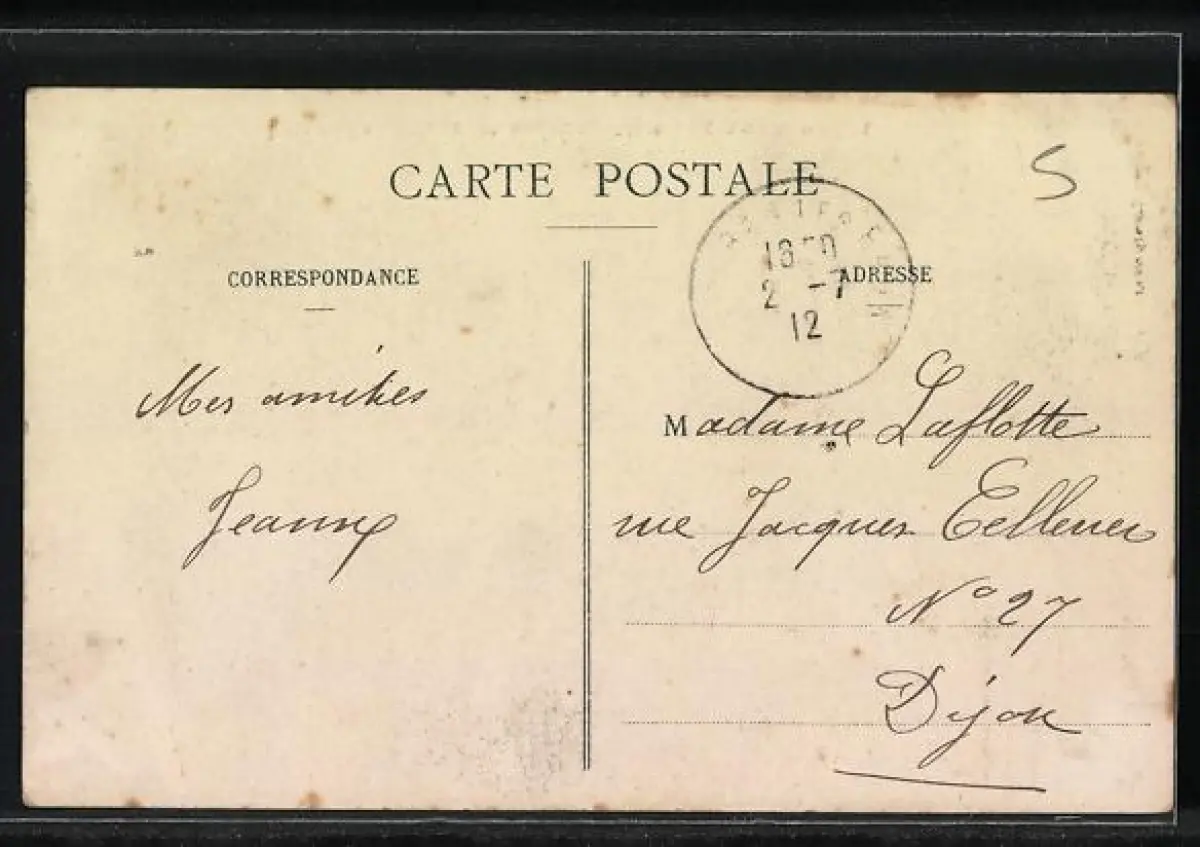 CARTE POSTALE
S
CORRESPONDANCE
ADRESSE
2 -7
12
Mes amitiés
Jeanne
Madame Laflotte
rue Jacques Cellerier
N° 27
Dijon